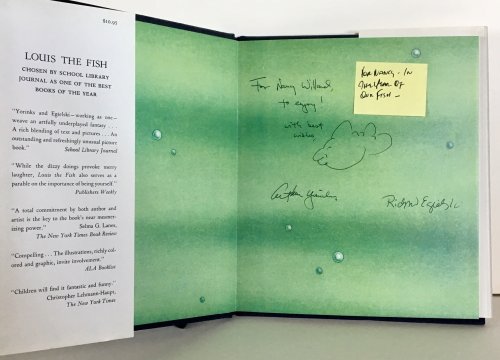 $10.95
LOUIS THE FISH
CHOSEN BY SCHOOL LIBRARY
JOURNAL AS ONE OF THE BEST
BOOKS OF THE YEAR
"Yorinks and Egielski—working as one—
weave an artfully underplayed fantasy . . .
A rich blending of text and pictures . . . An
outstanding and refreshingly unusual picture
book."
School Library Journal
"While the dizzy doings provoke merry
laughter, Louis the Fish also serves as
a parable on the importance of being yourself."
Publishers Weekly
"A total commitment by both author and
artist is the key to the book's near mesmer-
izing power."
Selma G. Lanes,
The New York Times Book Review
"Compelling . . . The illustrations, richly col-
ored and graphic, invite involvement."
ALA Booklist
"Children will find it fantastic and funny."
Christopher Lehmann-Haupt,
The New York Times
For Nancy Willard,
to enjoy!
with best
wishes,
Arthur Yorinks
Richard Egielski
FOR NANCY - IN
THE YEAR OF
OUR FISH -